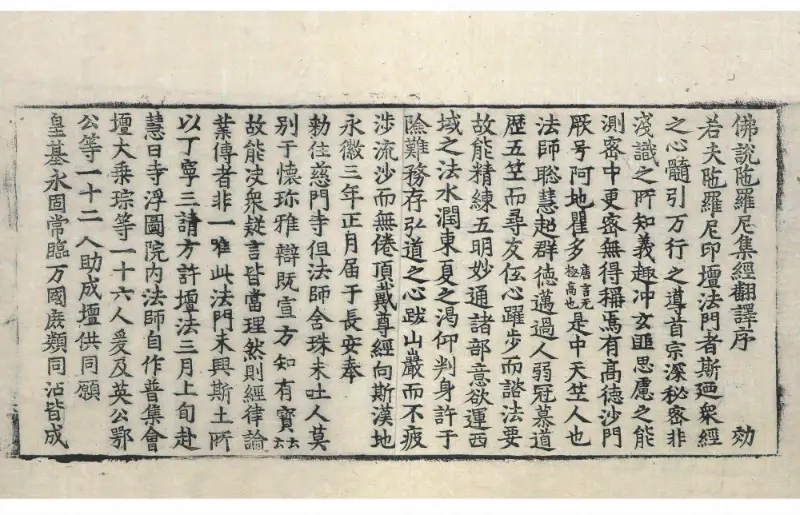 佛說陁羅尼集經翻譯序 効
若夫陁羅尼印壇法門者斯廼衆經
之心髓引万行之導首宗深秘密非
淺識之所知義趣冲玄匪思慮之能
測密中更密無得稱焉有髙德沙門
厥号阿地瞿多唐言无極高也是中天竺人也
法師聡慧超群德邁過人弱冠慕道
歷五竺而尋友伍心躍步而諮法要
故能精練五明妙通諸部意欲運西
域之法水潤東夏之渴仰判身許于
險難務存弘道之心跋山巖而不疲
涉流沙而無倦頂戴尊經向斯漢地
永徽三年正月届于長安奉
勑住慈門寺但法師含珠未吐人莫
別于懷珎雅辯既宣方知有寳
故能决衆疑言皆當理然則經律論
業傳者非一唯此法門未興斯土所
以丁寧三請方許壇法三月上旬赴
慧日寺浮圖院内法師自作普集會
壇大乗琮等一十六人爰及英公鄂
公等一十二人助成壇供同願
皇基永固常臨万國庻類同沾皆成